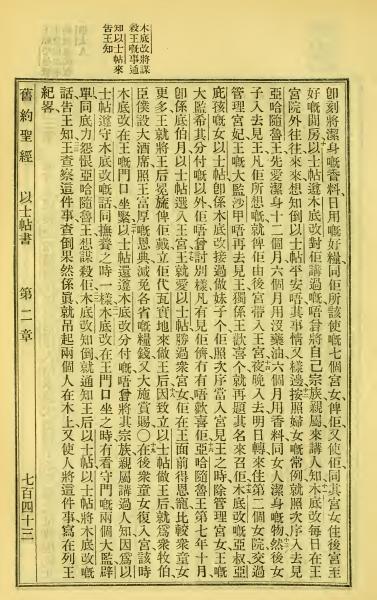 木底改將謀
殺王嘅事通
知以士帖來
告王知
卽刻將潔身嘅香料日用嘅好糧同佢所該使嘅七個宮女俾佢又使佢同其宮女住後宮至
好嘅閒房以士帖遵木底改對佢講過嘅唔曾將自己宗族親屬來講人知木底改每日在王
宮院外往往來來想知倒以士帖平安唔其事情又樣邊按照婦女嘅常例就照次序入去見
亞哈隨魯王先愛潔身十二個月六個月用沒藥油六個月用香料同女人潔身嘅物然後女
子入去見王凡佢所想嘅就俾佢由後宮帶入王宮夜晚入去明日轉來住第二個女院交過
管理宮妃王嘅大監沙甲唔再去見王獨係王歡喜个就再題其名來召佢木底改嘅亞叔亞
庇孩嘅女以士帖卽係木底改接過做妹子个佢照次序當入宮見王之時除管理宮女王嘅
大監希其分付嘅以外佢唔曾討別樣凡有見佢儕有有唔歡喜佢亞哈隨魯王第七年十月
卽係底伯月以士帖選入王宮王就愛以士帖勝過衆宮女佢在王面前得恩寵比較衆童女
更多王就將王后冕施俾佢戴立佢代瓦實地來做王后因致立以士帖做王后就爲衆牧伯
臣僕設大酒席照王富厚嘅恩典減免各省嘅糧錢又大施賞賜〇在後衆童女復入宮該時
木底改在王嘅門口坐緊以士帖還遵木底改分付嘅唔曾將其宗族親屬講過人知因爲以
士帖遵守木底改嘅話同撫養之時一樣木底改在王門口坐之時有看守門嘅兩個大監辟
單同底力怨恨亞哈隨魯王想謀殺佢木底改知倒就通知王后以士帖以士帖將木底改嘅
話告王知王查察這件事查倒果然係眞就吊起兩個人在木上又使人將這件事寫在列王
紀畧
舊約聖經　以士帖書　第二章　七百四十三